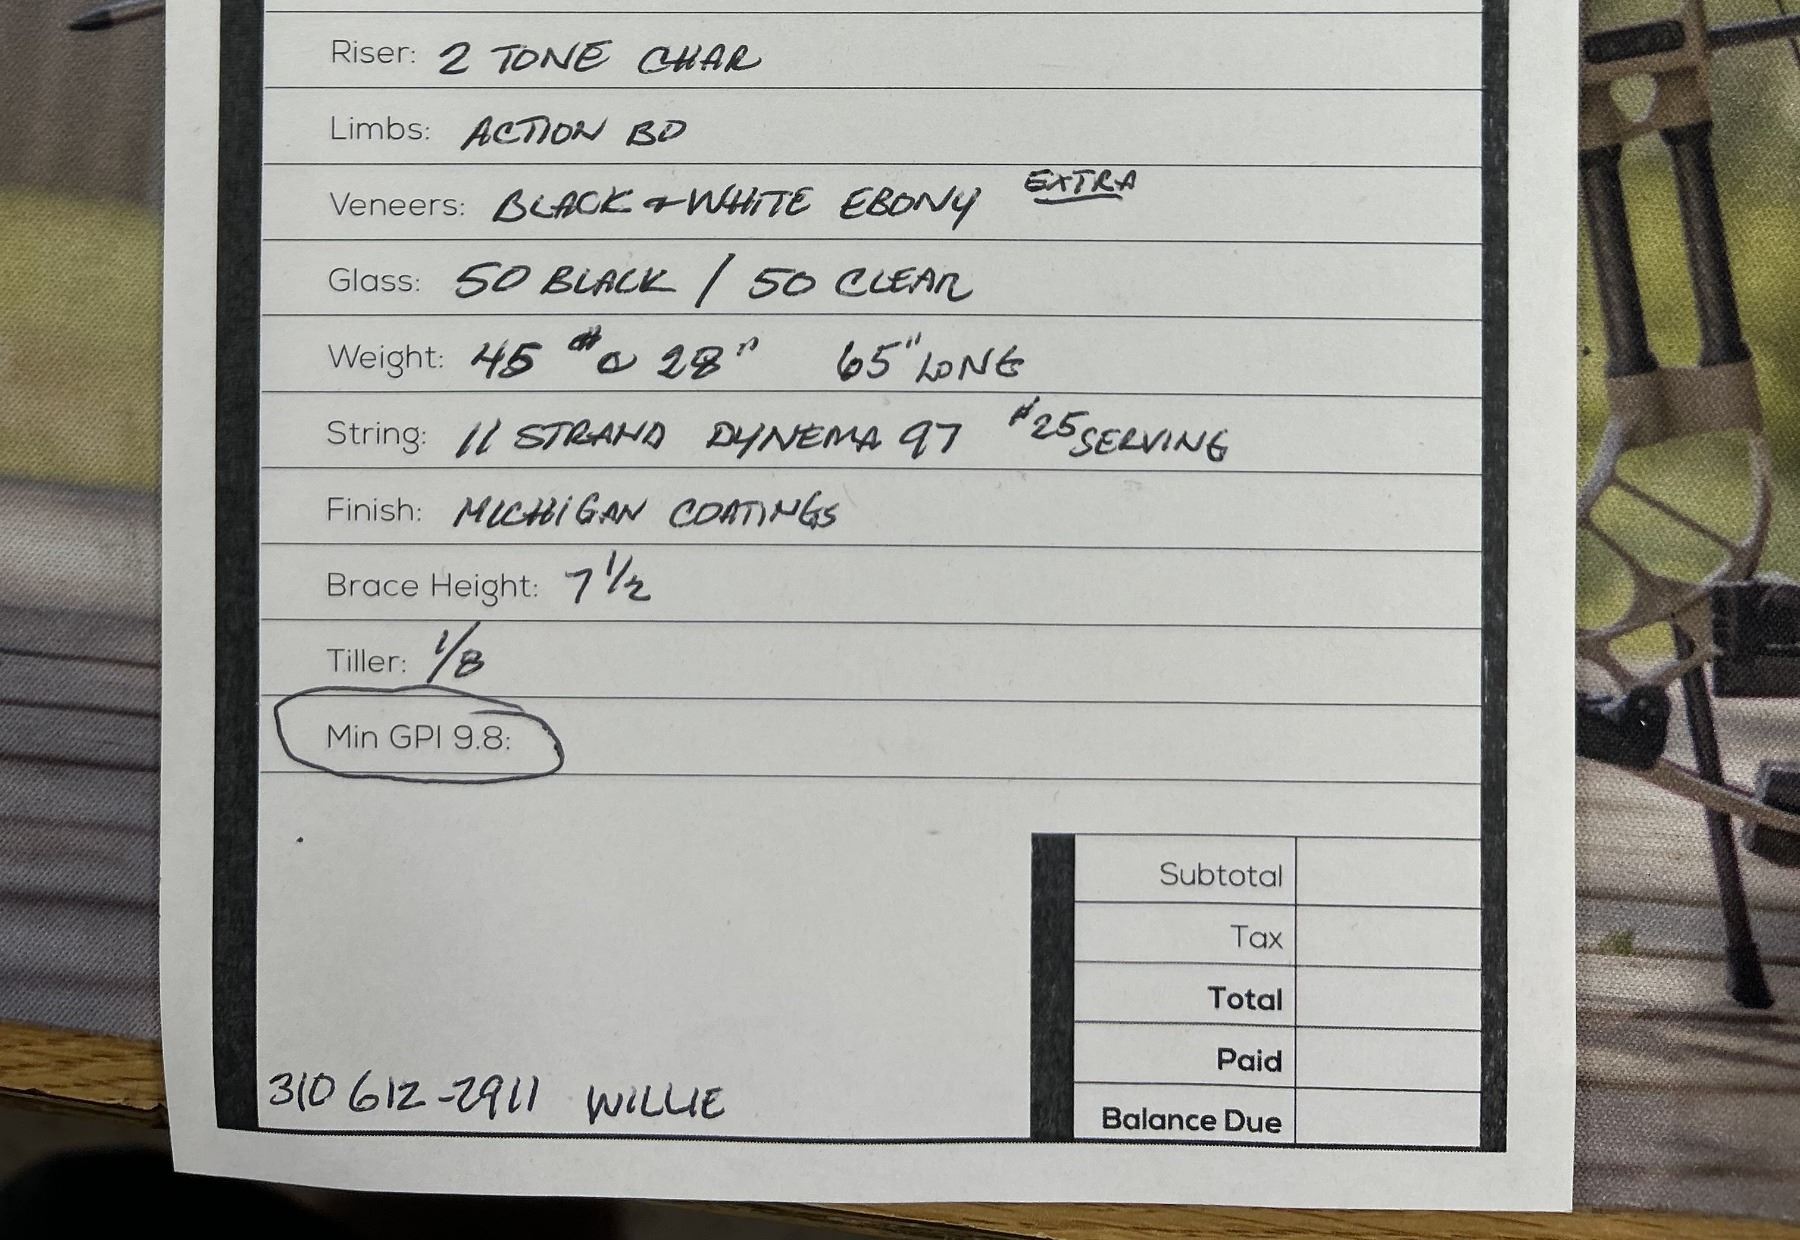 Riser: 2 TONE CHAR
Limbs: ACTION BO
Veneers: BLACK + WHITE EBONY EXTRA
Glass: 50 BLACK / 50 CLEAR
Weight: 45 # @ 28" 65" LONG
String: 11 STRAND DYNEMA 97 #25 SERVING
Finish: MICHIGAN COATINGS
Brace Height: 7 1/2
Tiller: 1/8
Min GPI 9.8:
Subtotal
Tax
Total
Paid
Balance Due
310 612-2911 WILLIE